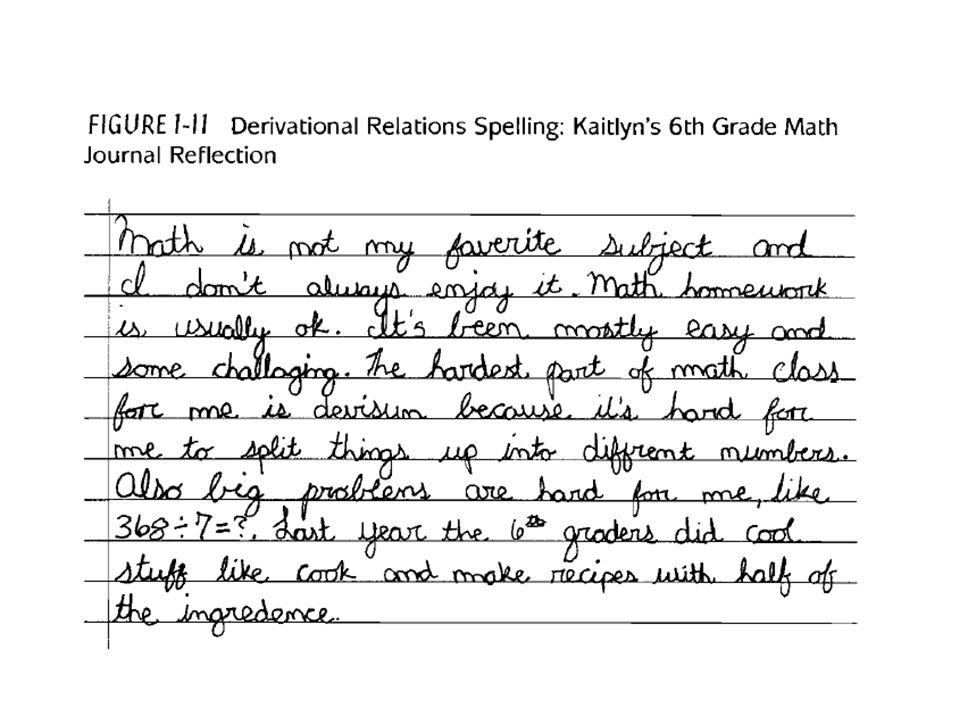 FIGURE 1-11 Derivational Relations Spelling: Kaitlyn's 6th Grade Math
Journal Reflection
Math is not my faverite subject and
I don't always enjoy it. Math homework
is usually ok. It's been mostly easy and
some challaging. The hardest part of math class
for me is devisun because it's hard for
me to split things up into diffrent numbers.
Also big problems are hard for me, like
368÷7=?. Last year the 6th graders did cool
stuff like cook and make recipes with half of
the ingredence.